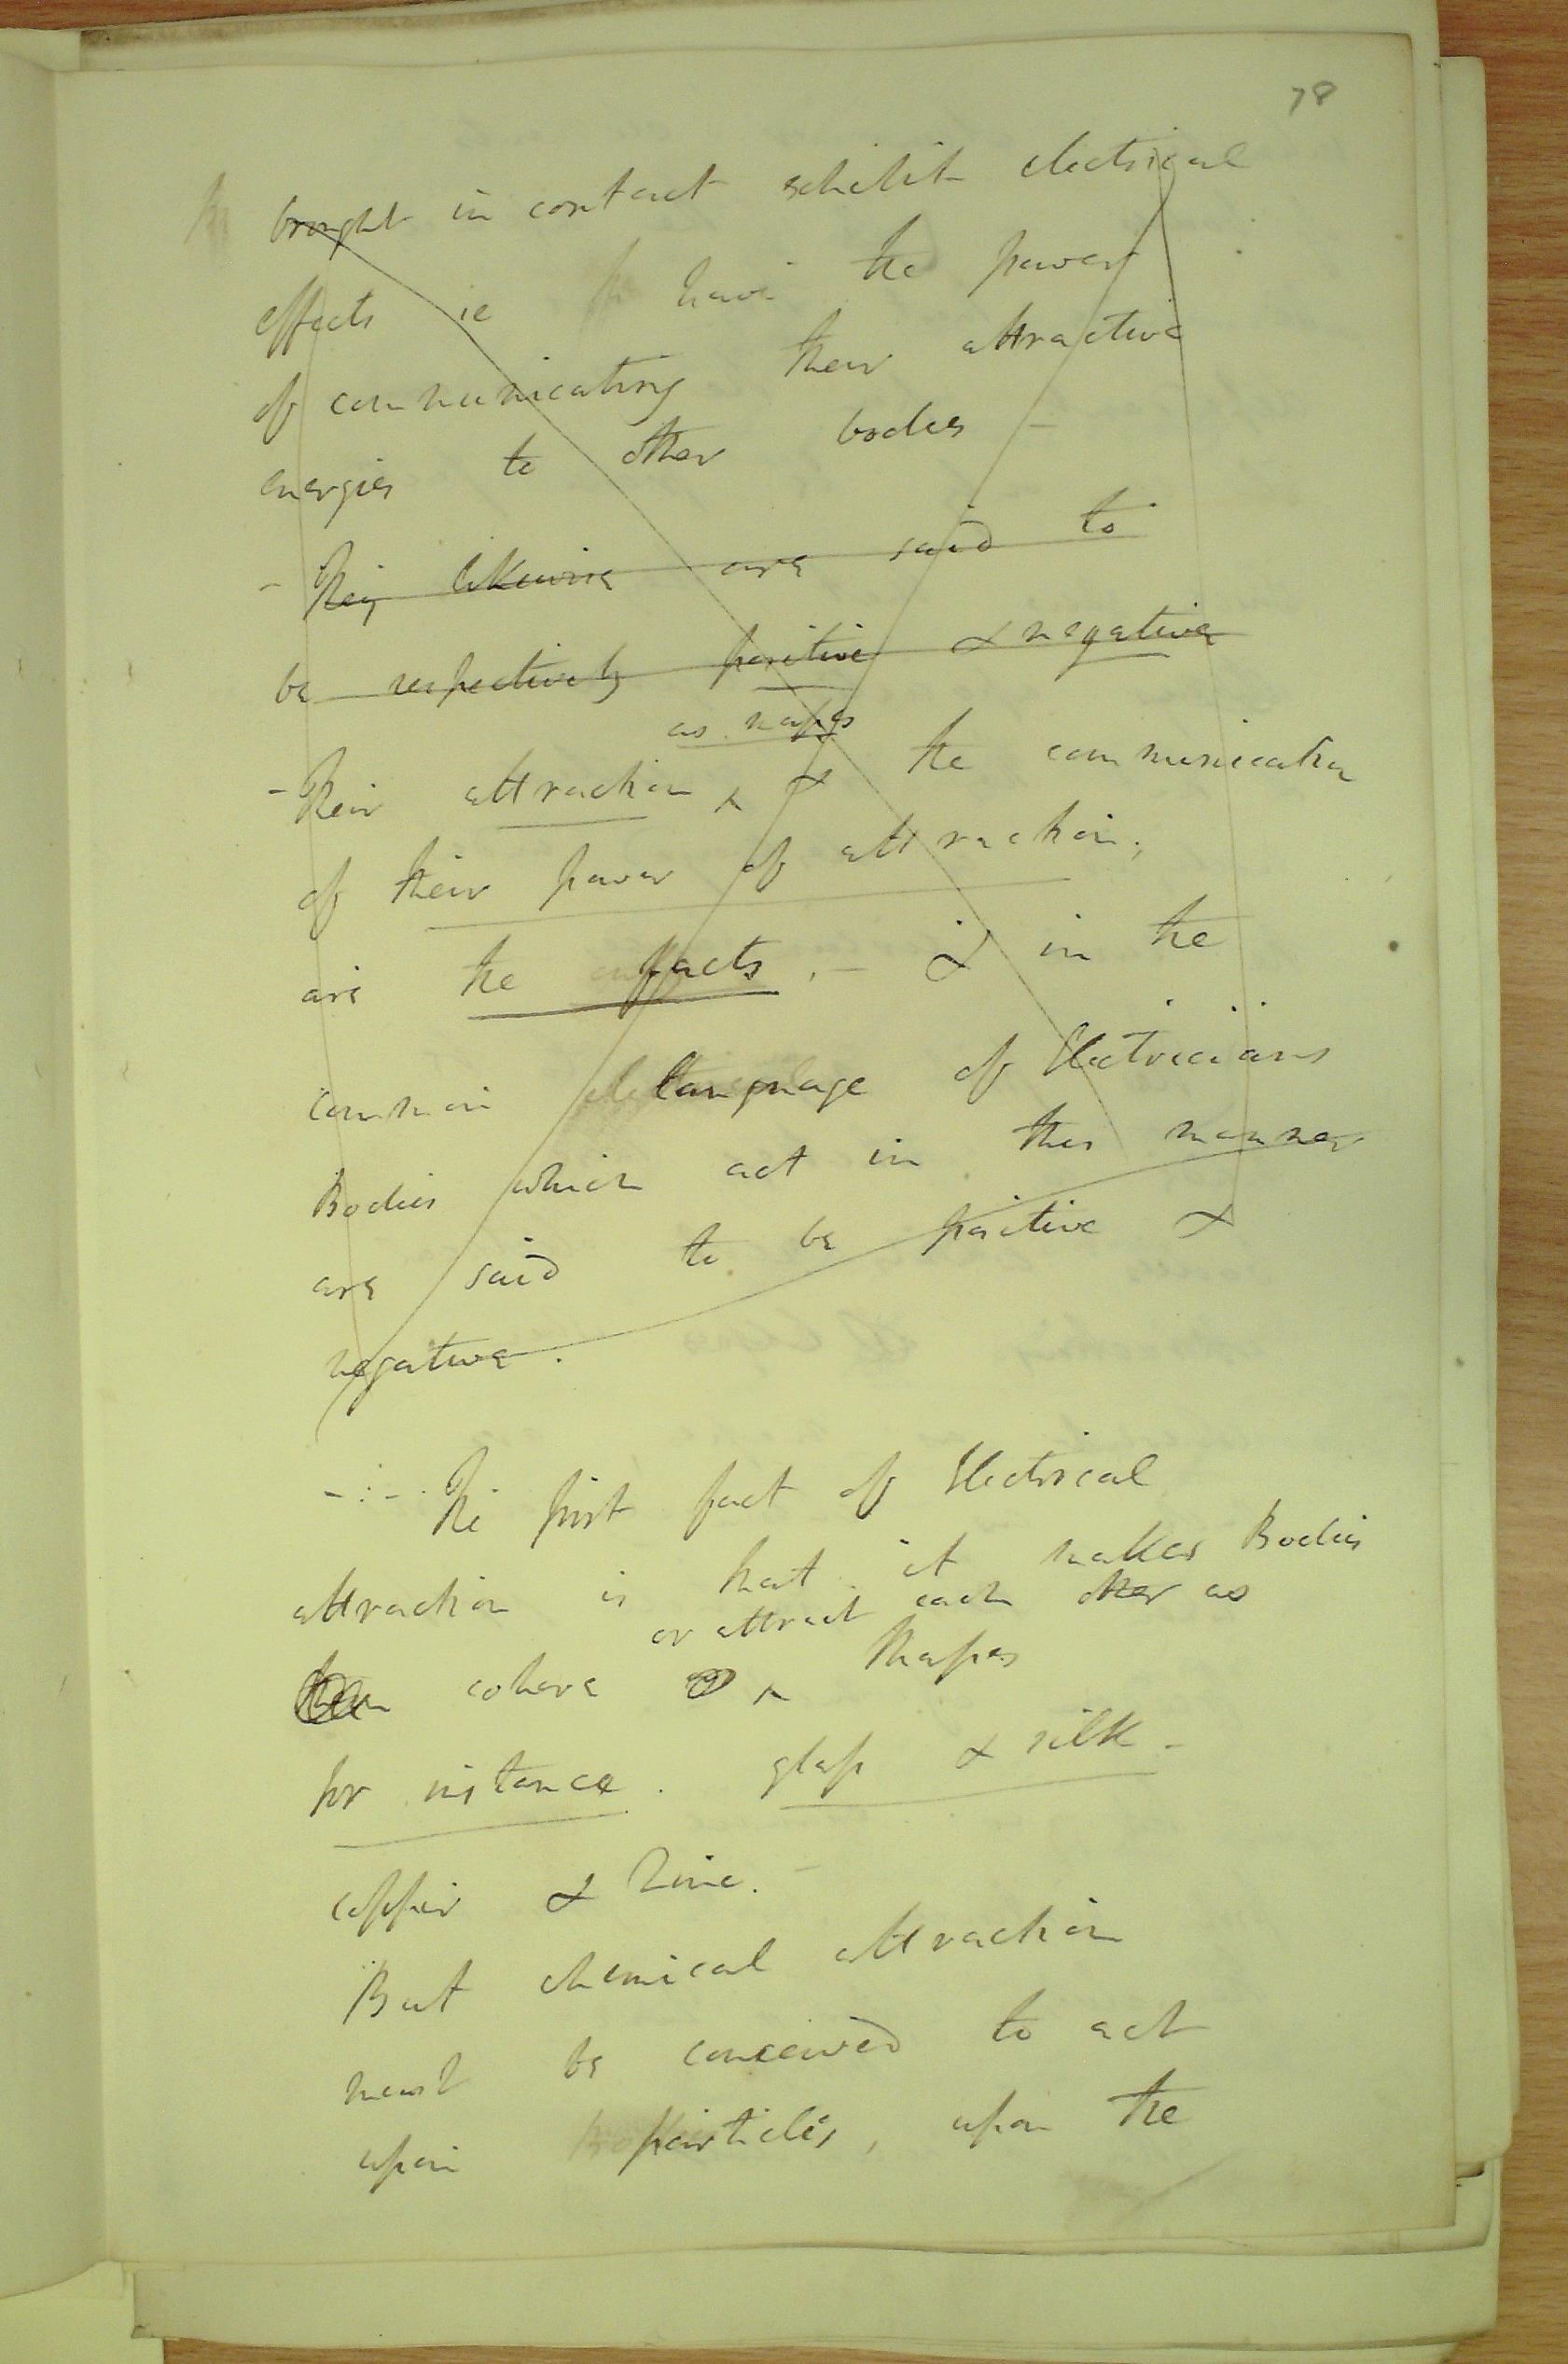 78
brought in contact exhibit electrical
effects ie have the power
of communicating their attractive
energies to other bodies -
- They likewise are said to
be respectively positive & negative
as mass
- Their attraction & the communication
of their power of attraction;
are the effects. - & in the
common language of Electricians
Bodies which act in this manner
are said to be positive &
negative.
-:-. The first fact of Electrical
attraction is that it makes Bodies
or attract each other as
them cohere Masses
for instance. glass & silk -
copper & Zinc. -
But chemical attraction
must be conceived to act
upon particles, upon the